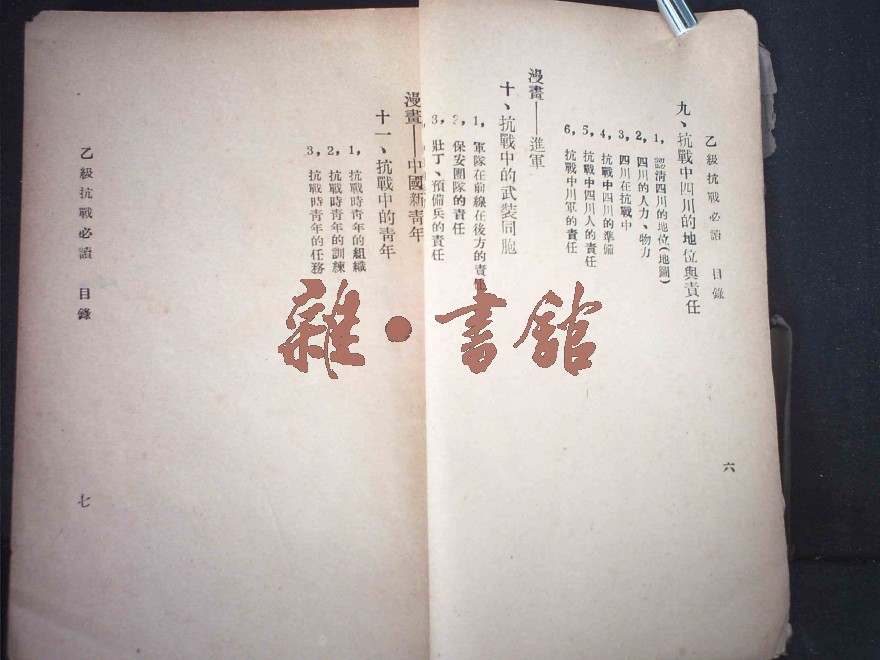 乙級抗戰必讀　目錄
九、抗戰中四川的地位與責任
1，認清四川的地位(地圖)
2，四川的人力、物力
3，四川在抗戰中
4，抗戰中四川的準備
5，抗戰中四川人的責任
6，抗戰中川軍的責任
漫畫——進軍
十、抗戰中的武裝同胞
1，軍隊在前線在後方的責任
2，保安團隊的責任
3，壯丁、預備兵的責任
六
漫畫——中國新靑年
十一、抗戰中的靑年
1，抗戰時靑年的組織
2，抗戰時靑年的訓練
3，抗戰時靑年的任務
乙級抗戰必讀　目錄
七
雜·書館